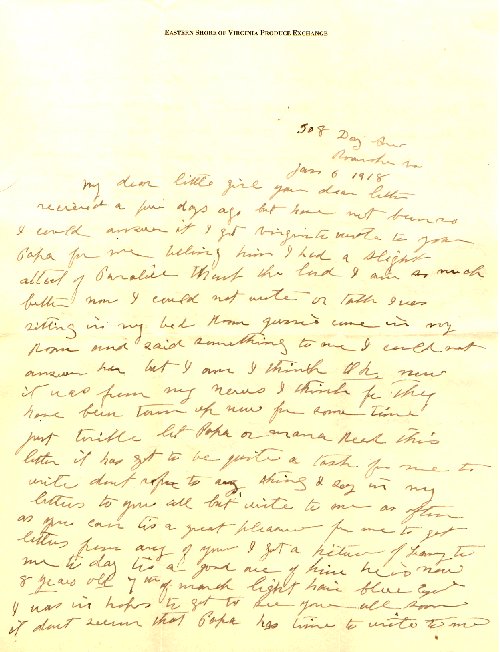 EASTERN SHORE OF VIRGINIA PRODUCE EXCHANGE
508 Day Ave
Roanoke Va
Jan 6 1918
My dear little girl your dear letter
recieved a few days ago but have not been so
I could answer it I got Virginia wrote to your
Papa for me telling him I had a slight
attact of Paralice thank the lord I am so much
better now I could not write or talk I was
sitting in my bed Room come in my
Room and said something to me I could not
answer her but I am I think Ok now
it was from my nervs I think for they
have been torn up now for some time
just terible let Papa or mama Read this
letter it has got to be quite a task for me to
write dont refer to any thing I say in my
letters to you all but write to me as often
as you can tis a great pleasure for me to get
letters from any of you I got a picture of
me to day tis a good one of him he is now
8 years old of march light hair blue eyes
I was in hopes to get to see you all soon
it dont seem that Papa has time to write to me